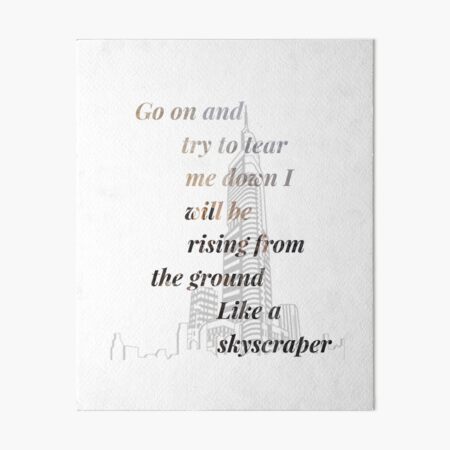 Go on and
try to tear
me down I
will be
rising from
the ground
Like a
skyscraper